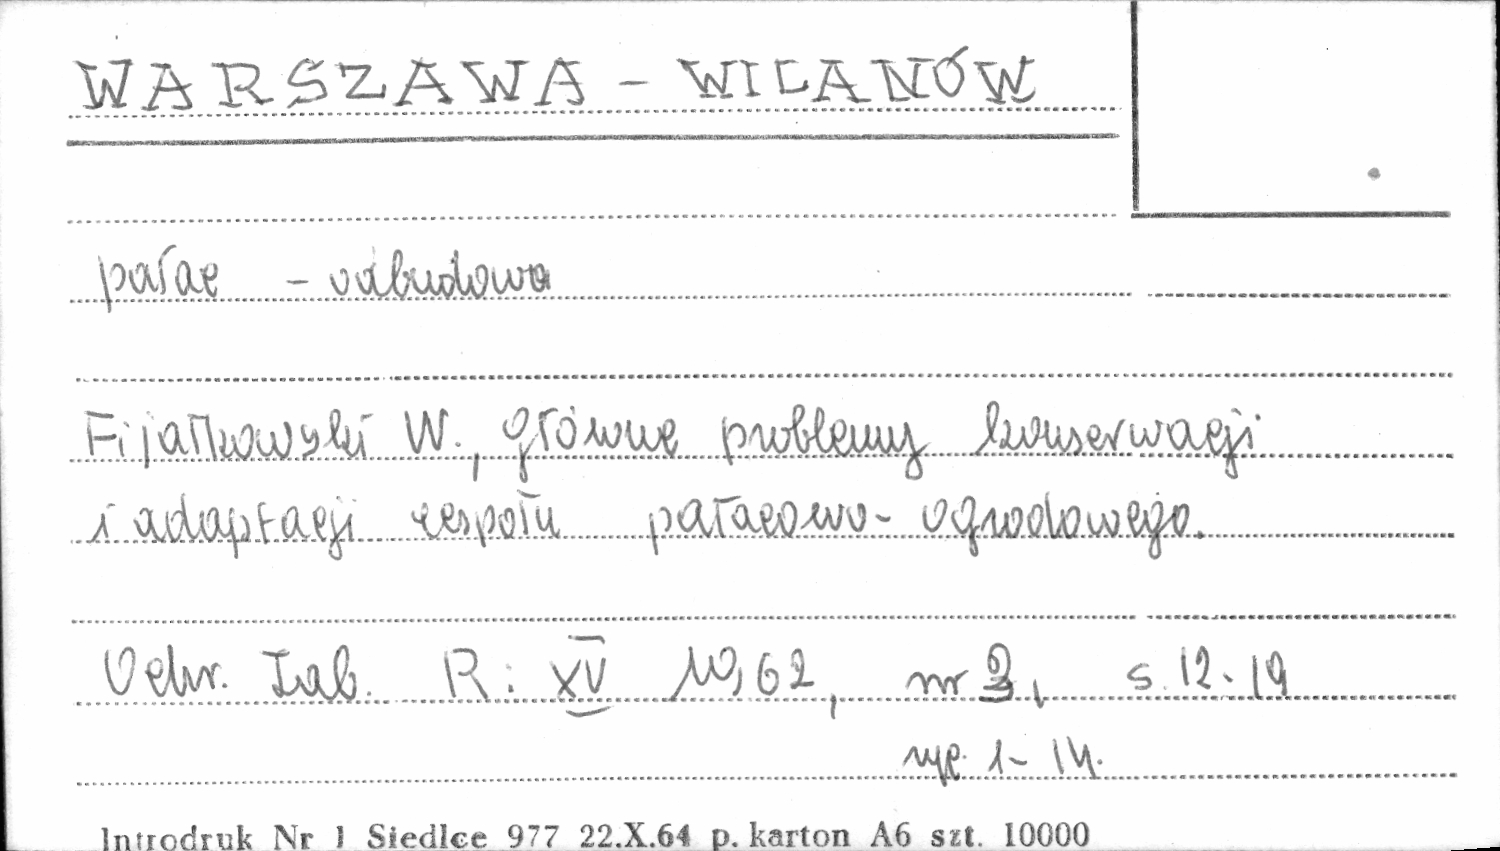 WARSZAWA - WILANÓW
pałac - odbudowa
Fijałkowski W., główne problemy konserwacji
i adaptacji zespołu pałacowo-ogrodowego.
Ochr. Zab. R: XV 1962, nr 2, s. 12-19
ryc. 1-14.
Introdruk Nr 1 Siedlce 977 22.X.64 p. karton A6 szt. 10000